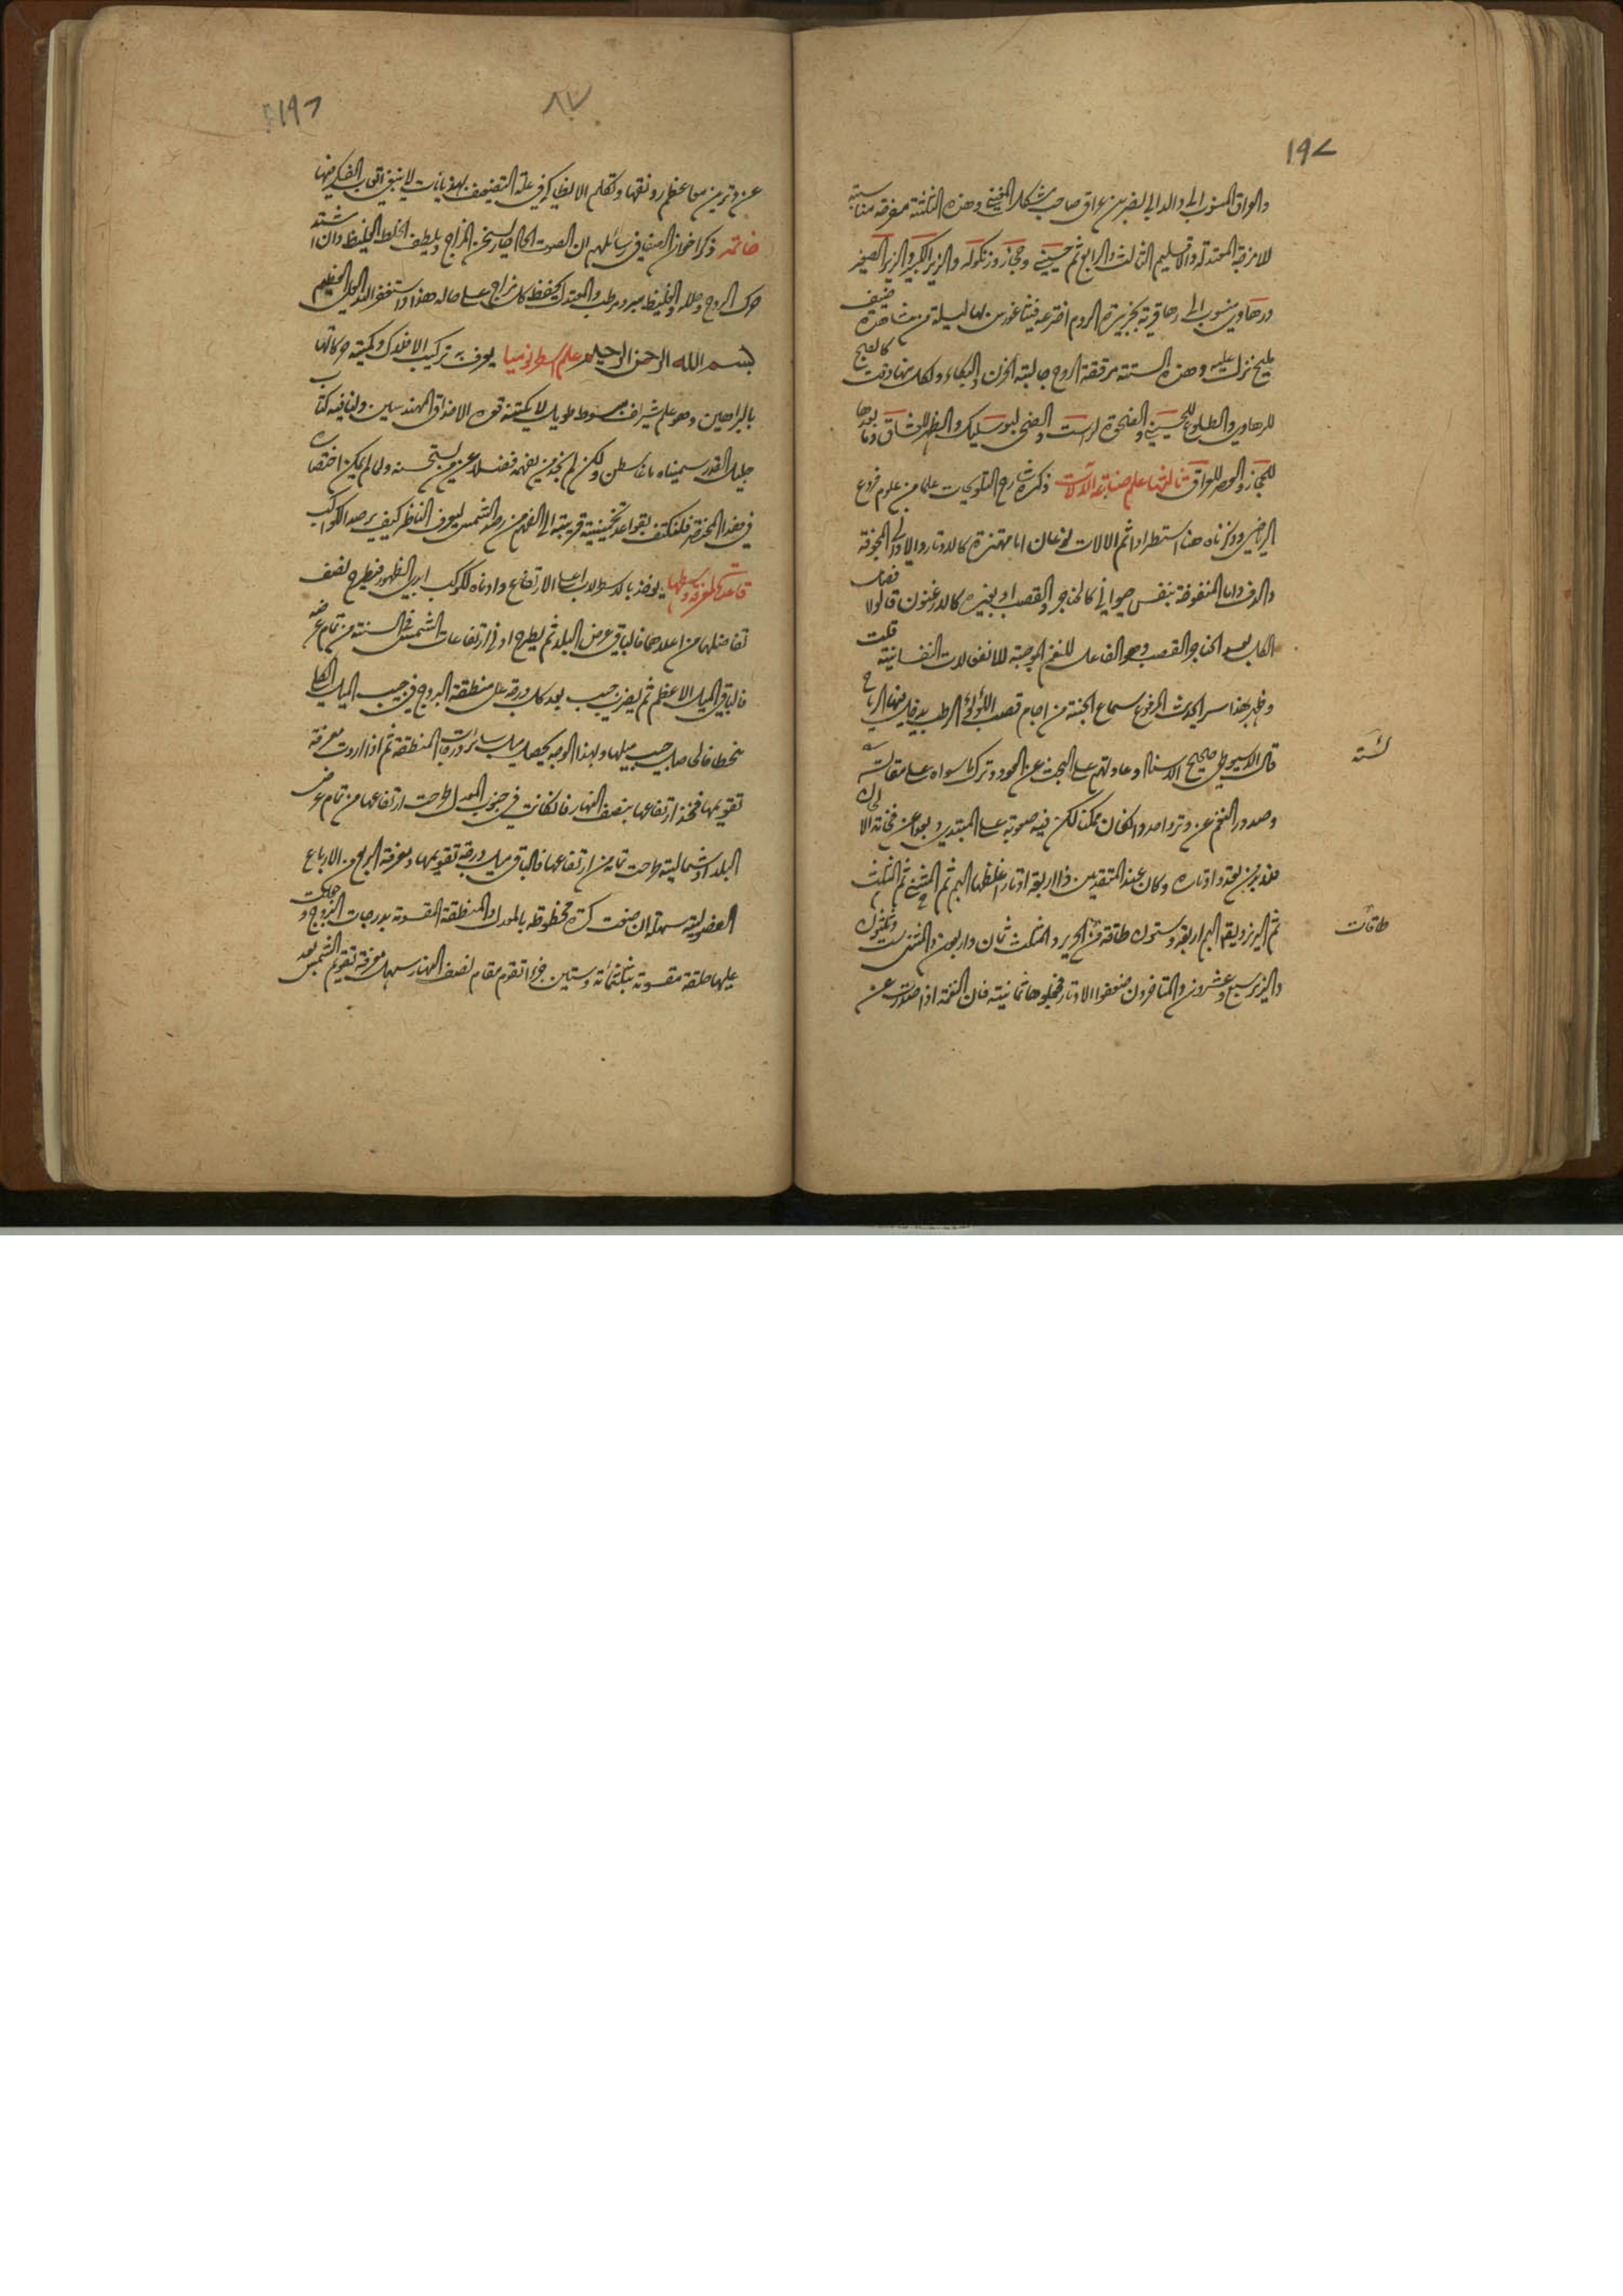 ١٩٧
والعراق المنسوب الى والد ابي النضر بن عراق صاحب شكل المغني وهذه الثلثة مفرقة مناسبة
للامزجة المعتدلة والاقليم الثالث والرابع ثم حسيني وحجاز وزنكوله والزير الكبير والزير الصغير
ورهاوي ينسوب الى رها قرية بجزيرة الروم اخترعه فيثاغورس بها ليلة من مشاهدة ضيف
مليح نزل عليه وهذه الستة مرققة الروح جالبة الحزن والبكاء ولكل منها وقت كالصبح
للرهاوي والطلوع للحسيني والضحوة لراست والضحى لبوسليك والظهر للعشاق وما بعدها
للحجاز والعصر للعراق ثالثها علم صناعة الآلات ذكره شارح التلويحات علما من علوم فروع
الرياضي وذكرناه هنا استطرادا ثم الالات نوعان اما مهتزة كالاوتار والاواني المجوفة
والدف واما المنفوخة بنفس حيواني كالحناجر والقصب او بغيره كالارغنون قالوا افضل
الكل بعد الحناجر القصب وهو الفاعل للنغم الموجبة للانفعالات النفسانية قلت
وظهر بهذا سر الحديث المرفوع سماع الجنة من اجام قصب اللؤلؤ الرطب يدخل فيها الرياح
قال السيوطي صحيح الاسناد وعادتهم على البحث عن العود وترك ما سواه على مقالسته
لشة
وصدور النغم عن وتر واحد وان كان ممكنا لكن فيه صعوبة على المبتدي وبعد عن فخامة الالحان
فلا بد من تعدد اوتاره وكان عند المتقدمين ذا اربعة اوتار اغلظها البم ثم المثنى ثم المثلث
ثم الزير ويقع البم اربعة وستون طاقة من الحرير والمثلث ثمان واربعون والمثنى ست وثلثون
طاقات
والزير سبع وعشرون والمتاخرون ضعفوا الاوتار فجعلوها ثمانية فان النغمة اذا صدرت عن
١٩٦
٨٧
عن وترين معا عظم رونقها وتكلم الانطاكي في علة التضعيف بهذيانات لا ينبغي اتعاب الفكر فيها
خاتمة ذكر اخوان الصفا في رسائلهم ان الصوت الحاد حار يسخن المزاج ويلطف الخلط الغليظ وان اشتد
حرك الروح وحلله والغليظ مبرد مرطب والمعتدل يحفظ كل مزاج على حاله هذا واستغفر الله العلي العظيم
بسم الله الرحمن الرحيم علم اسطرونوميا يعرف به تركيب الافلاك وكمية حركاتها
بالبراهين وهو علم شريف مبسوط طويل لا يكتنه قوه الا حذاق المهندسين ولنا فيه كتاب
جليل القدر سميناه ماغاسطن ولكن لم نجد من يفهمه فضلا عن من يستحسنه ولما لم يمكن اختصاره
في هذا المختصر فلنكتف بقواعد تخمينية قريبة الى الفهم من رصد الشمس ليعرف الناظر كيف يرصد الكواكب
قاعدة لمعرفة وصلها يوخذ بالاسطرلاب اعلى الارتفاع وادناه لكوكب ابدي الظهور فيطرح نصف
تفاضلهما من اعلاهما فالباقي عرض البلد ثم يطرح ادنى ارتفاعات الشمس في السنة من تمام عرضه
فالباقي الميل الاعظم ثم يضرب جيب بعد كل درجة على منطقة البروج في جيب الميل الكلي
منحطا فالحاصل جيب ميلها وبهذا الوجه يحصل ميل سائر درجات المنطقة ثم اذا اردت معرفة
تقويمها فخذ ارتفاعها بنصف النهار فان كانت في جنوب المعدل طرحت ارتفاعها من تمام عرض
البلد او شمالية طرحت تمامه من ارتفاعها فالباقي ميل درجة تقويمها ومعرفة الربع من الارباع
الفصولية سهلة ان صنعت كرة مخطوطة بالمعدل والمنطقة المقسومة بدرجات البروج وجعلت
عليها حلقة مقسومة بثلثمائة وستين جزءا تقوم مقام نصف النهار سهل معرفة تقويم الشمس بعد